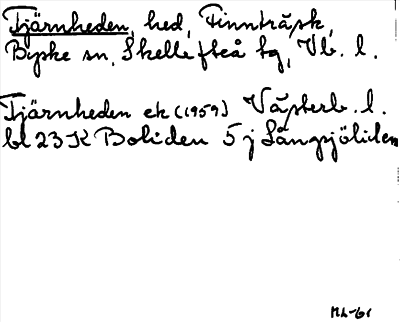 Tjärnheden, hed, Finnträsk,
Byske sn, Skellefteå tg, Vb. l.
Tjärnheden ek (1959) Västerb. l.
bl 23 K Boliden 5 j Långsjöliden